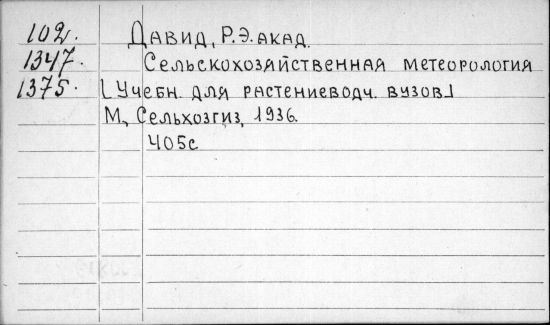 102. Давид, Р.Э. акад.
1347. Сельскохозяйственная метеорология
1375. [Учебн. для растениеводч. вузов]
М., Сельхозгиз, 1936.
405с